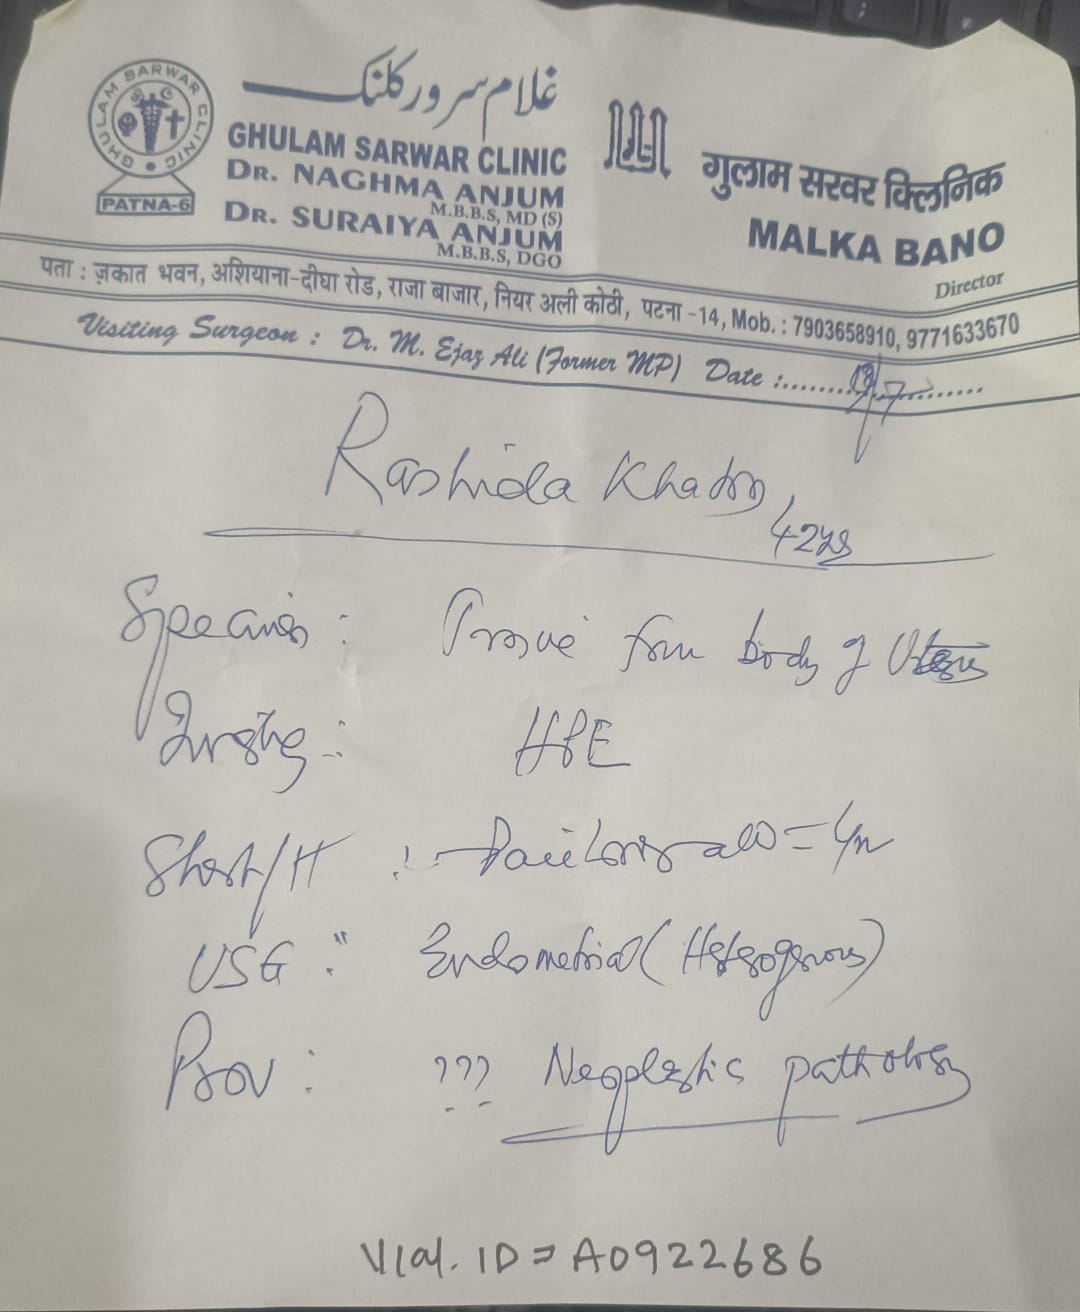 GHULAM SARWAR CLINIC
PATNA-6
غلام سرور کلنک
GHULAM SARWAR CLINIC
DR. NAGHMA ANJUM
M.B.B.S, MD (S)
DR. SURAIYA ANJUM
M.B.B.S, DGO
गुलाम सरवर क्लिनिक
MALKA BANO
Director
पता : ज़कात भवन, अशियाना-दीघा रोड, राजा बाजार, नियर अली कोठी, पटना -14, Mob. : 7903658910, 9771633670
Visiting Surgeon : Dr. M. Ejaz Ali (Former MP) Date :
Rashida Khatoon
Specimen : from body of Uterus
HPE
Short/H :
USG : Endometrial (Heterogenous)
Prov : ??? Neoplastic pathology
Vial. ID = A0922686